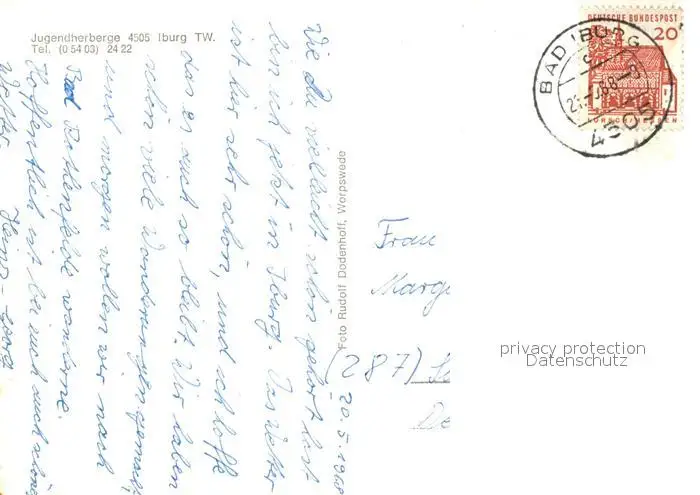 Jugendherberge 4505 Iburg TW.
Tel. (0 54 03) 24 22
20.5.1968
Wie Du vielleicht schon gehört hast
bin ich jetzt in Iburg. Das Wetter
ist hir sehr schön, und ich hoffe
das es auch so bleibt. Wir haben
schon viele Wanderungen gemacht,
und morgen wollen wir nach
Bad Rothenfelde wandern.
Hoffentlich ist bei euch auch schönes
Wetter
Heinz-Georg
Foto Rudolf Dodenhoff, Worpswede
Frau
Marg
(287)
De
DEUTSCHE BUNDESPOST
20
LORSCH/HESSEN
BAD IBURG
4505
privacy protection
Datenschutz